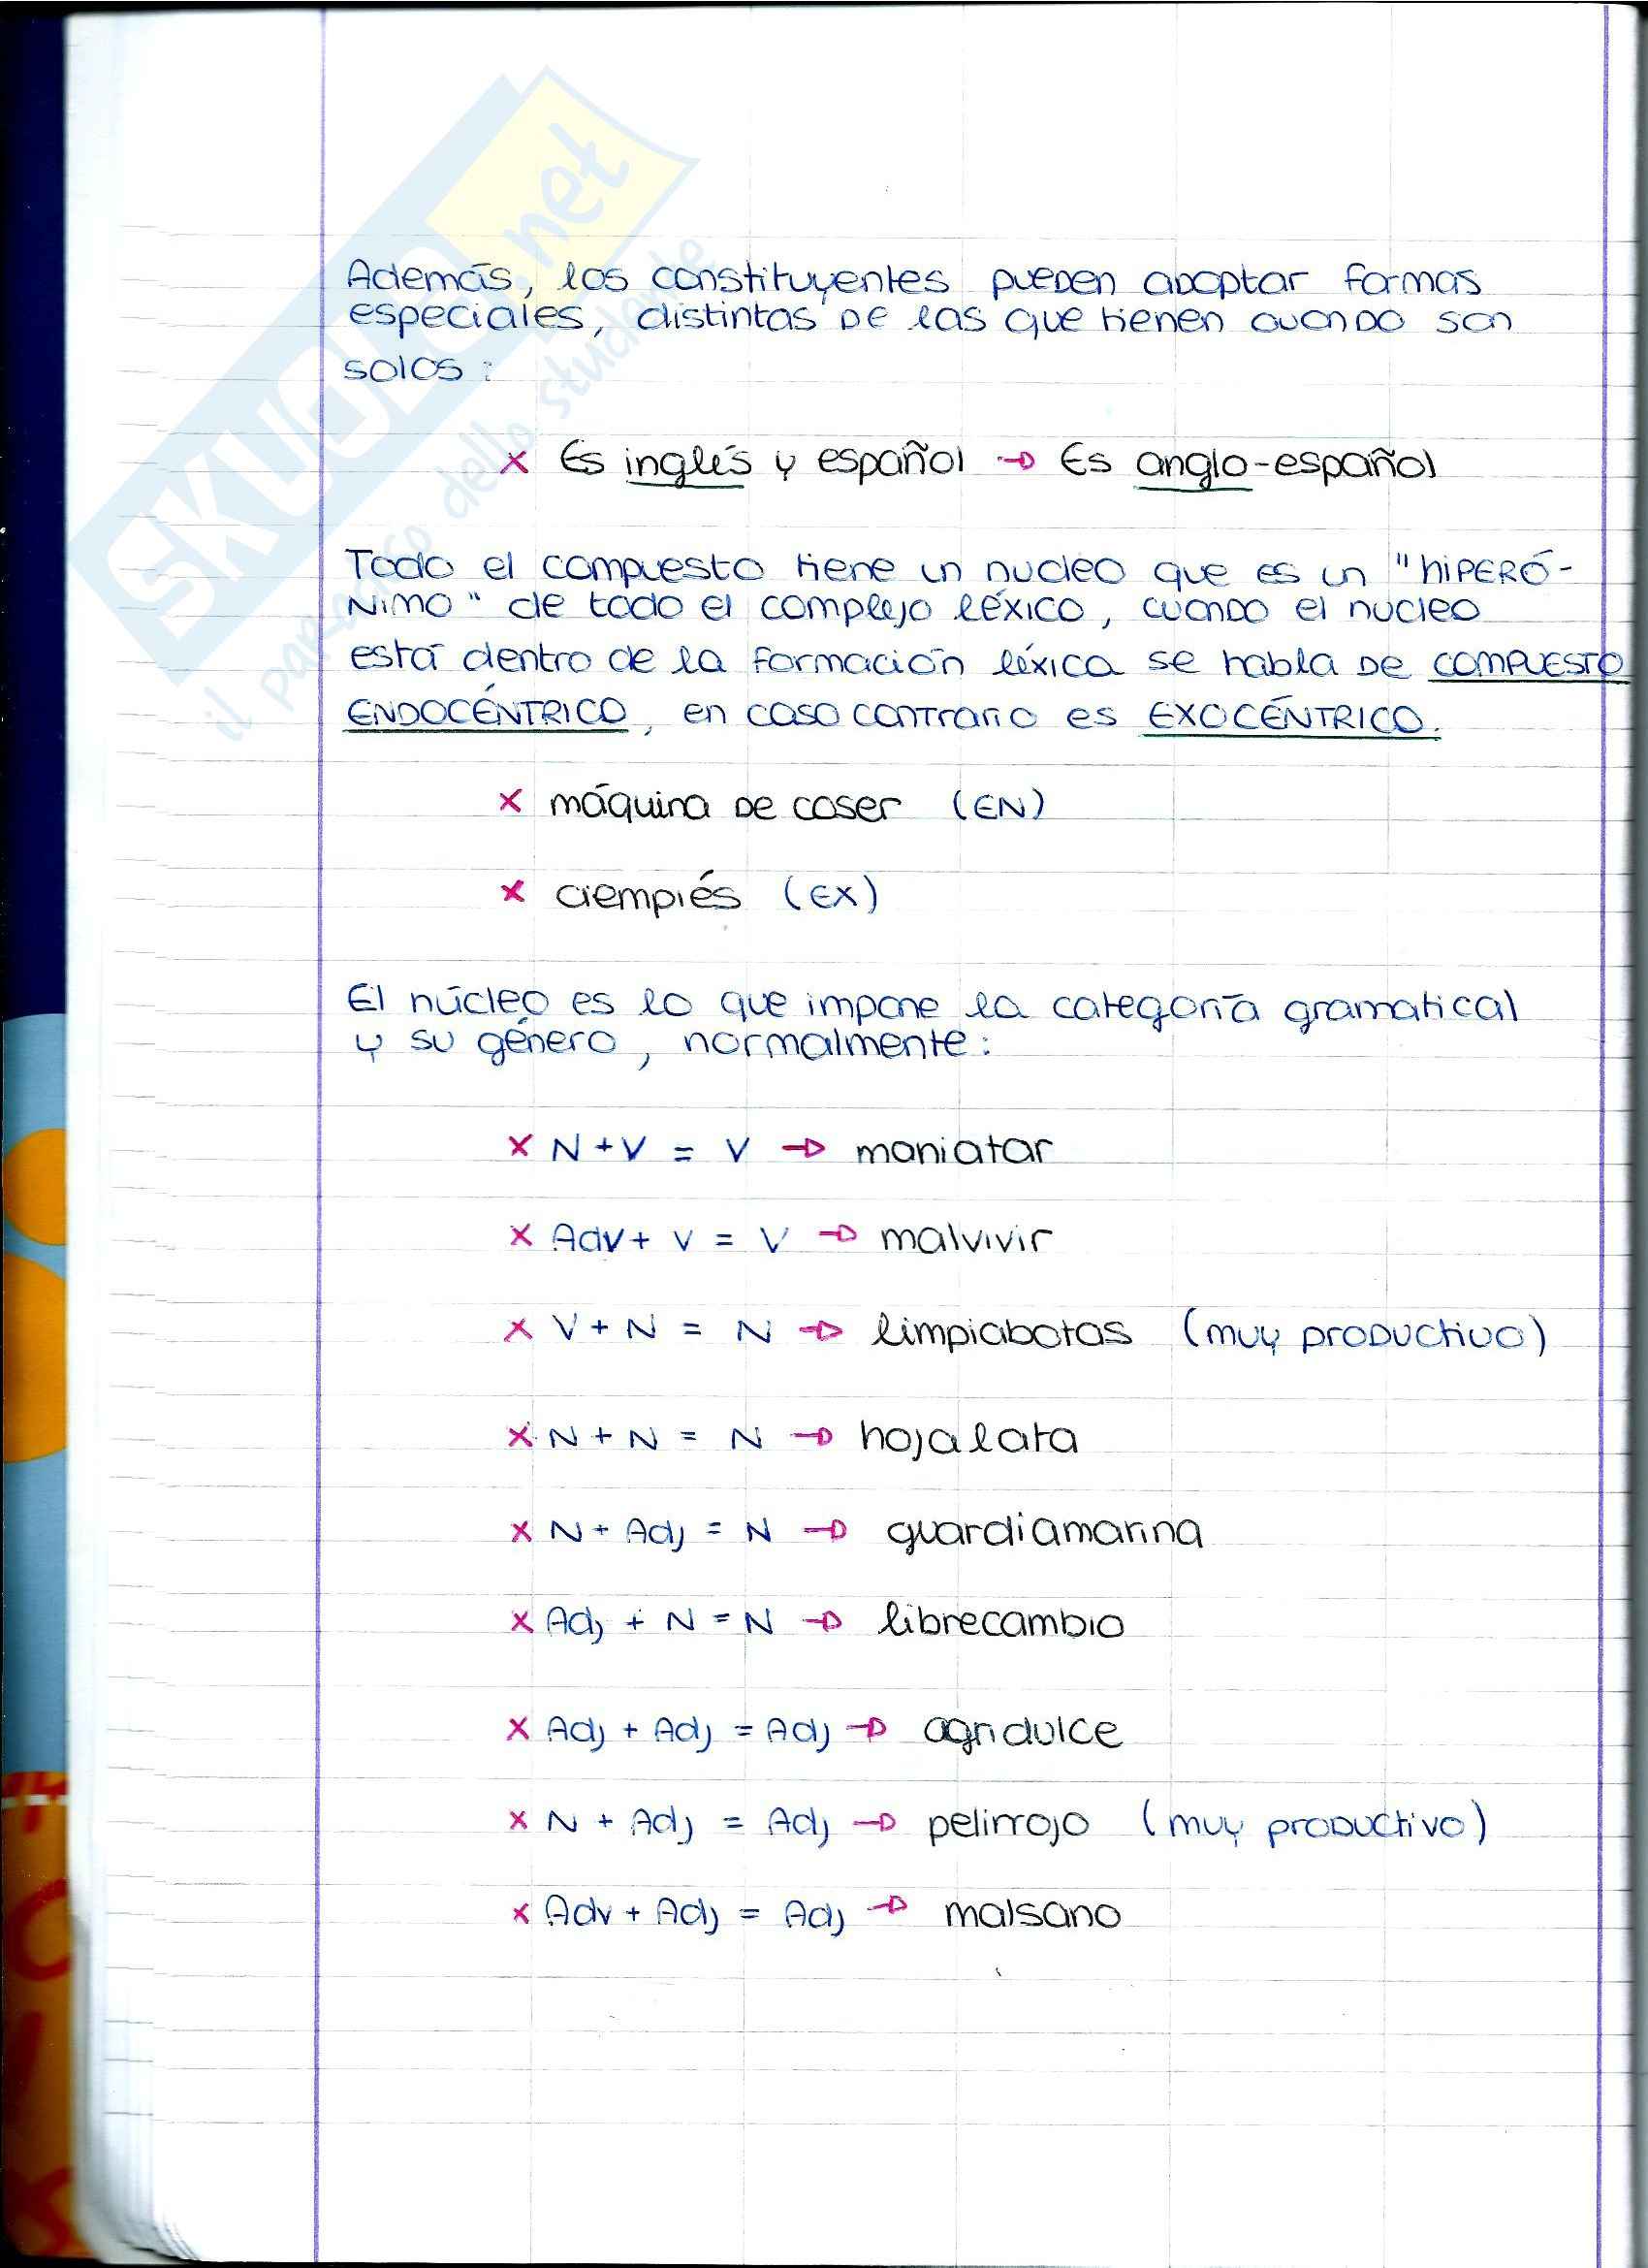 Además, los constituyentes pueden adoptar formas
especiales, distintas de las que tienen cuando son
solos:
x Es inglés y español → Es anglo-español
Todo el compuesto tiene un nucleo que es un "hiperó-
nimo" de todo el complejo léxico, cuando el nucleo
está dentro de la formación léxica se habla de COMPUESTO
ENDOCÉNTRICO, en caso contrario es EXOCÉNTRICO.
x máquina de coser (EN)
x ciempiés (EX)
El núcleo es lo que impone la categoría gramatical
y su género, normalmente:
x N + V = V → maniatar
x Adv + V = V → malvivir
x V + N = N → limpiabotas (muy productivo)
x N + N = N → hojalata
x N + Adj = N → guardiamarina
x Adj + N = N → librecambio
x Adj + Adj = Adj → agridulce
x N + Adj = Adj → pelirrojo (muy productivo)
x Adv + Adj = Adj → malsano
SKUOLA.net
il paradiso dello studente